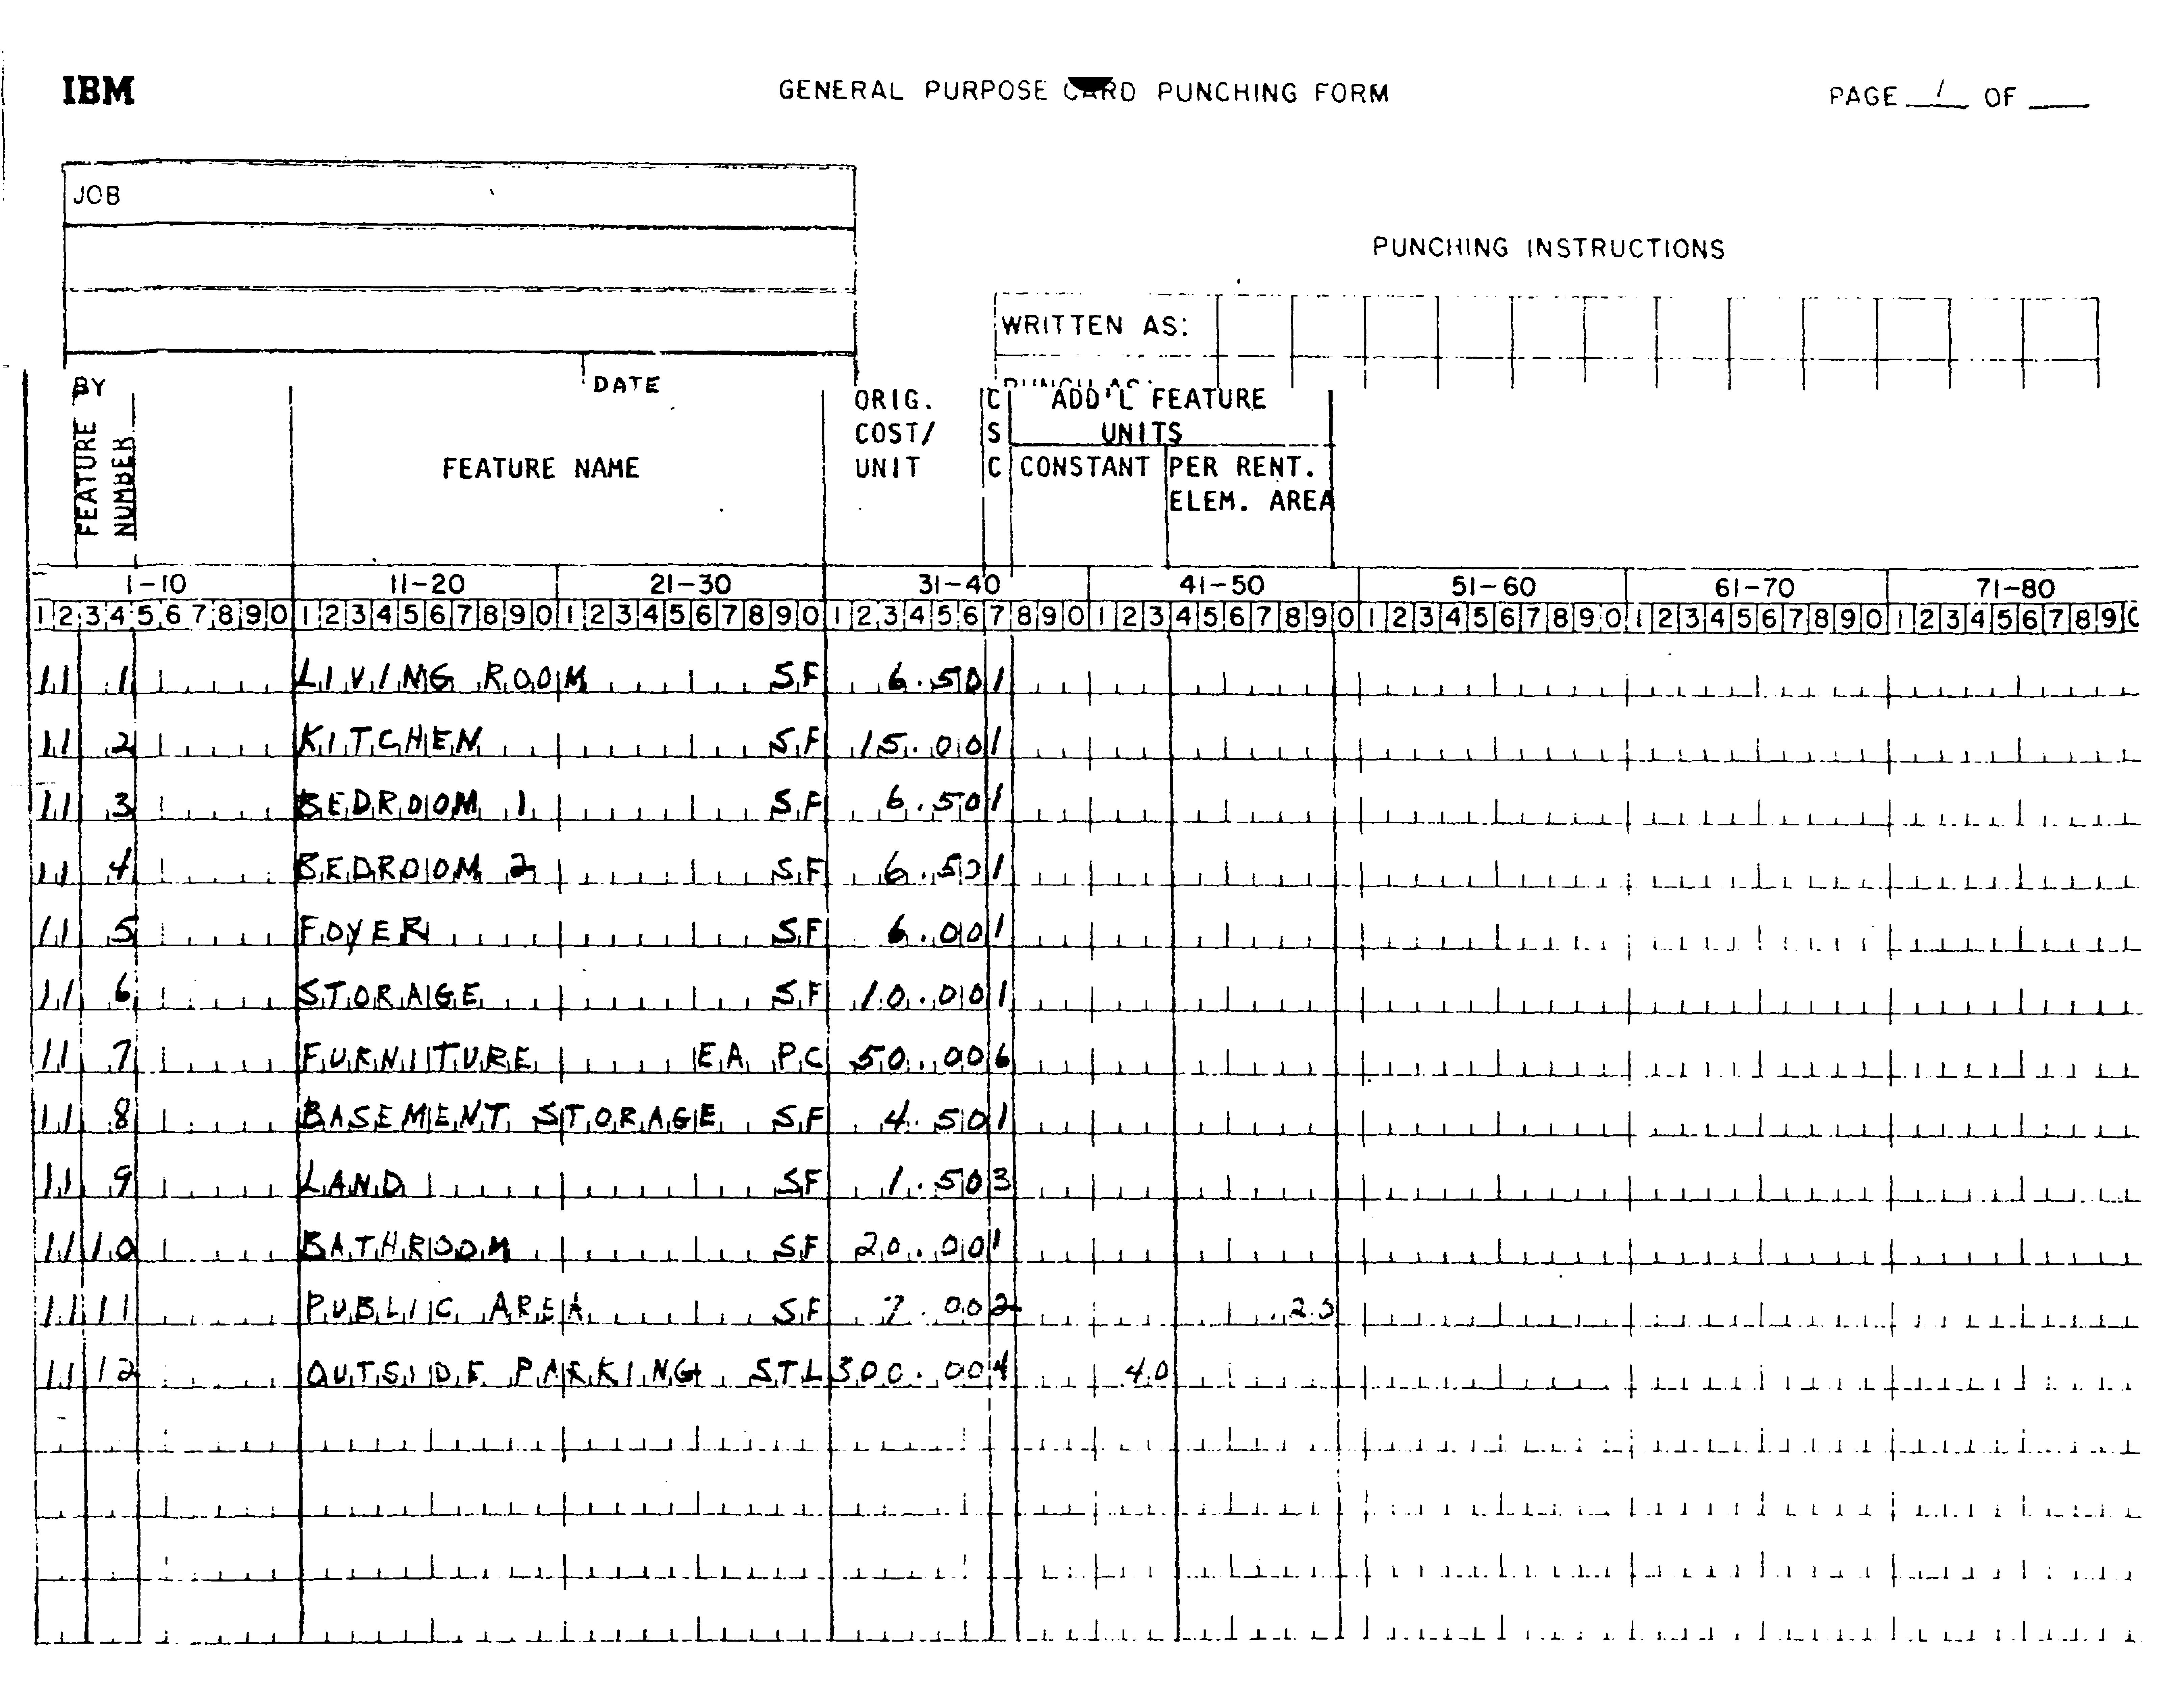 IBM GENERAL PURPOSE CARD PUNCHING FORM PAGE 1 OF
JOB
PUNCHING INSTRUCTIONS
WRITTEN AS:
PUNCH AS:
BY DATE
FEATURE NUMBER
FEATURE NAME
ORIG. COST/ UNIT
C S C
ADD'L FEATURE UNITS
CONSTANT
PER RENT. ELEM. AREA
1-10 11-20 21-30 31-40 41-50 51-60 61-70 71-80
1 2 3 4 5 6 7 8 9 0 1 2 3 4 5 6 7 8 9 0 1 2 3 4 5 6 7 8 9 0 1 2 3 4 5 6 7 8 9 0 1 2 3 4 5 6 7 8 9 0 1 2 3 4 5 6 7 8 9 0 1 2 3 4 5 6 7 8 9 0 1 2 3 4 5 6 7 8 9 0
11 1 LIVING ROOM SF 6.50 1
11 2 KITCHEN SF 15.00 1
11 3 BEDROOM 1 SF 6.50 1
11 4 BEDROOM 2 SF 6.50 1
11 5 FOYER SF 6.00 1
11 6 STORAGE SF 10.00 1
11 7 FURNITURE EA PC 50.00 6
11 8 BASEMENT STORAGE SF 4.50 1
11 9 LAND SF 1.50 3
11 10 BATHROOM SF 20.00 1
11 11 PUBLIC AREA SF 7.00 2
11 12 OUTSIDE PARKING STL 300.00 4 40